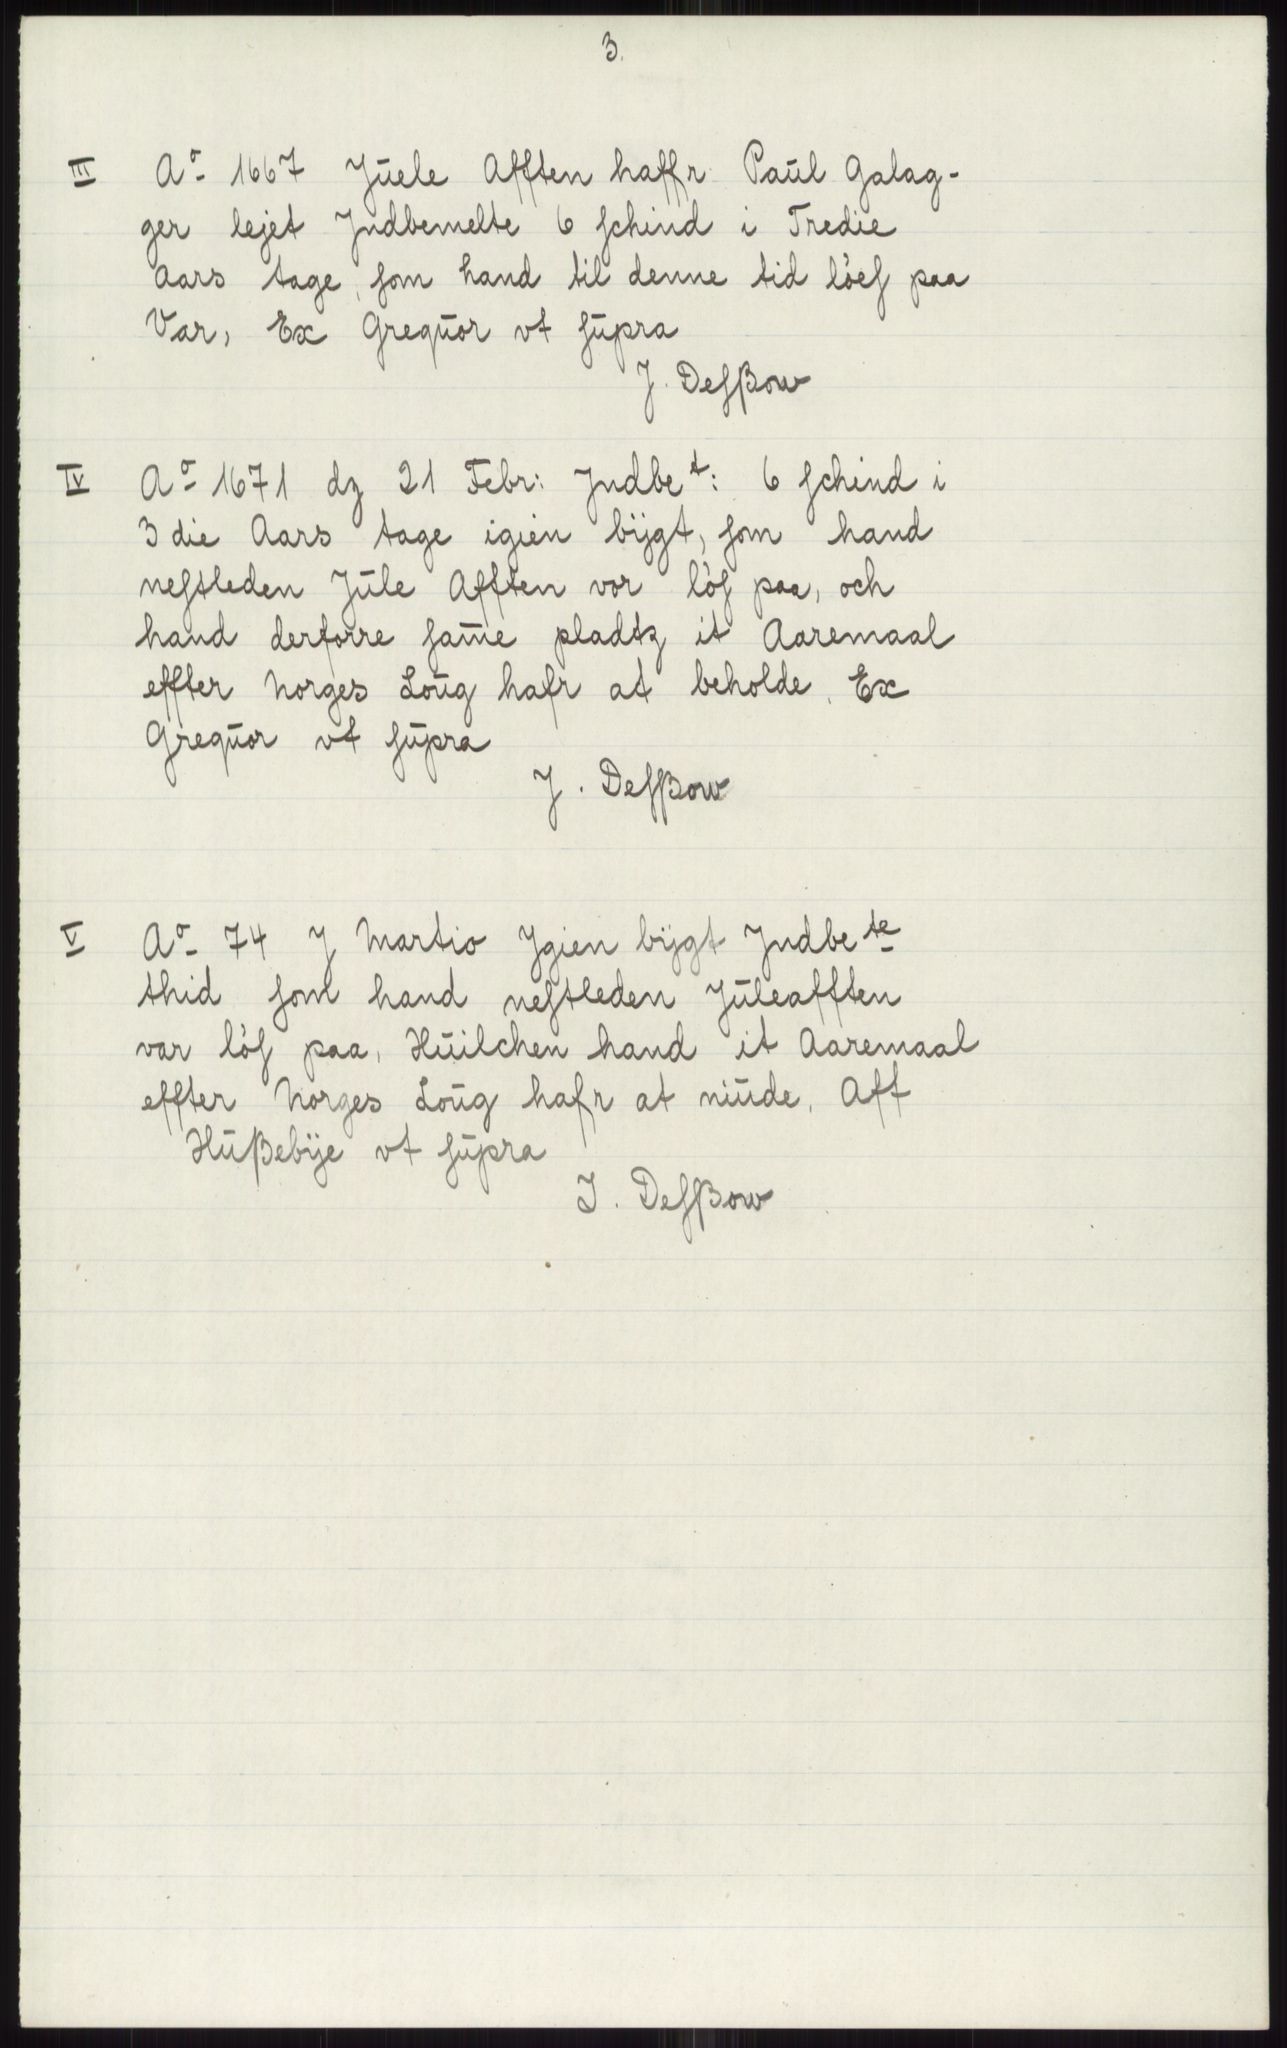 3.
III Ao 1667 Jūele Afften haffr Paūl Galag-
ger lejet Jndbemelte 6 schind i Tredie
Aars tage, som hand til denne tid löes paa
Var, Ex Greqūor vt sūpra
J. Desßow
IV Ao 1671 dz 21 Febr: Jndbet: 6 schind i
3 die Aars tage igien bÿgt, som hand
nestleden Jūle Afften vor lös paa, och
hand derforre sam̄e pladtz it Aaremaal
effter Norges Loūg hafr at beholde. Ex
Greqūor vt sūpra
J. Desßow
V Ao 74 J Martio Jgien bÿgt Jndbete
thid som hand nestleden Jūleafften
var lös paa, Hūilchen hand it Aaremaal
effter Norges Loūg hafr at niūde. Aff
Hūßebÿe vt sūpra
J. Desßow